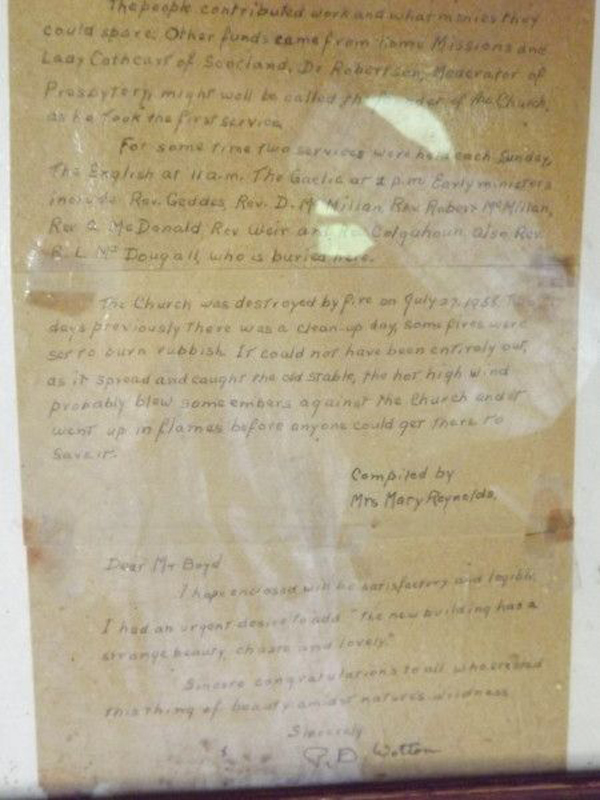 The people contributed work and what monies they
could spare. Other funds came from Home Missions and
Lady Cathcart of Scotland. Dr Robertson, Moderator of
Presbytery, might well be called the founder of the Church,
as he took the first service
For some time two services were held each Sunday,
the English at 11 a.m. The Gaelic at 2 p.m. Early ministers
include Rev. Geddes, Rev. D. McMillan, Rev Robert McMillan,
Rev A McDonald, Rev Weir and Rev Colquhoun, also Rev.
R. L. Mc Dougall, who is buried here.
The Church was destroyed by fire on July 27, 1958. Two
days previously there was a clean-up day, some fires were
set to burn rubbish. It could not have been entirely out,
as it spread and caught the old stable, the hot high wind
probably blew some embers against the Church and it
went up in flames before anyone could get there to
save it.
Compiled by
Mrs Mary Reynolds.
Dear Mr Boyd
I hope enclosed will be satisfactory and legible,
I had an urgent desire to add "the new building has a
strange beauty, chaste and lovely."
Sincere congratulations to all who created
this thing of beauty amidst nature's wildness
Sincerely
P. D. Wotton